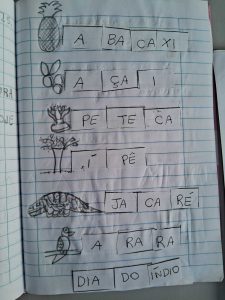 A BA CA XI
A ÇA Í
PE TE CA
I PÊ
JA CA RÉ
A RA RA
DIA DO ÍNDIO